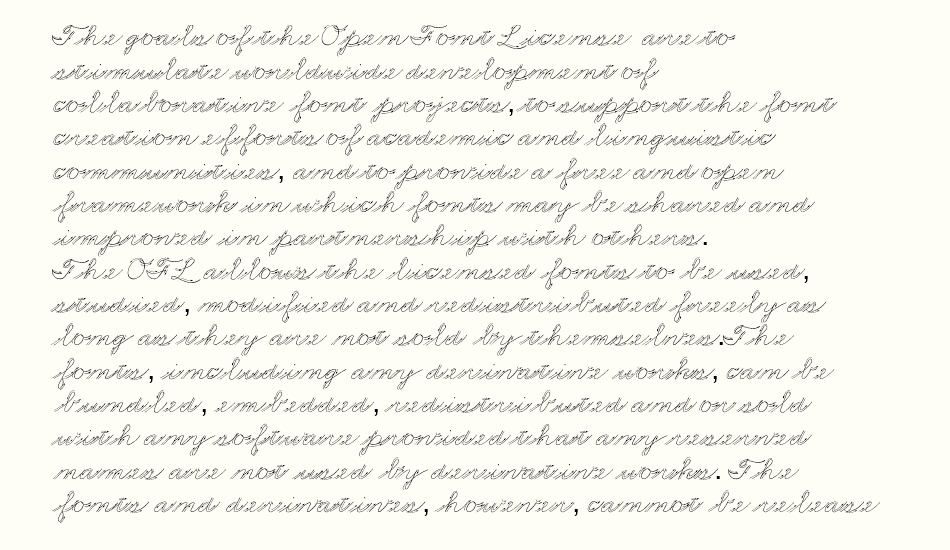 The goals of the Open Font License are to
stimulate worldwide development of
collaborative font projects, to support the font
creation efforts of academic and linguistic
communities, and to provide a free and open
framework in which fonts may be shared and
improved in partnership with others.
The OFL allows the licensed fonts to be used,
studied, modified and redistributed freely as
long as they are not sold by themselves.The
fonts, including any derivative works, can be
bundled, embedded, redistributed and or sold
with any software provided that any reserved
names are not used by derivative works. The
fonts and derivatives, however, cannot be release